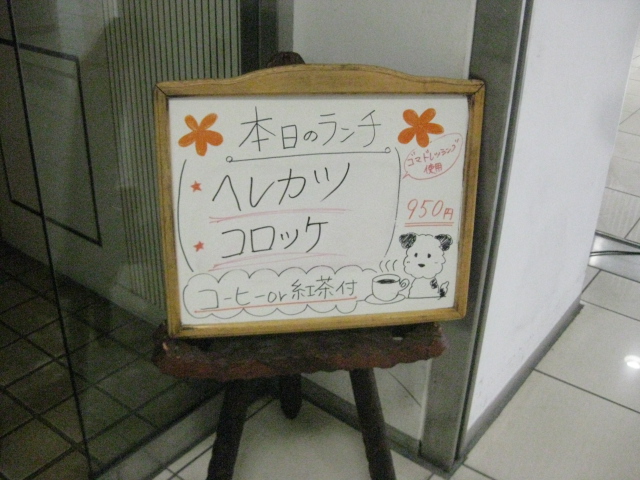 本日のランチ
ゴマドレッシング
使用
★ヘレカツ
★コロッケ
950円
コーヒーor紅茶付